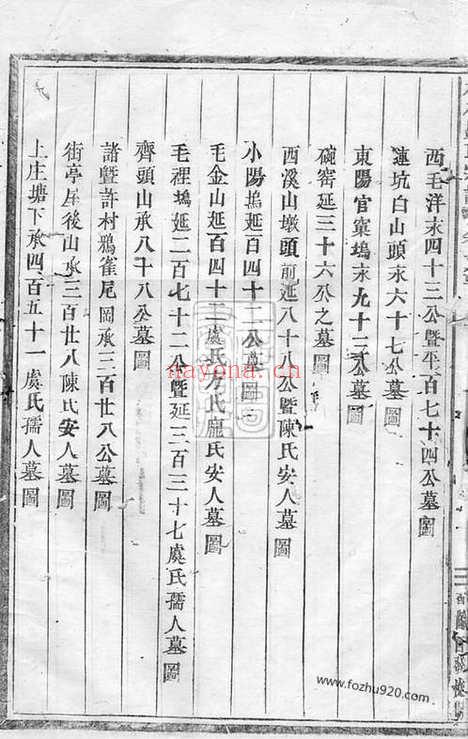 西毛洋永四十三公暨平百七十四公墓圖
蓮坑白山頭永六十七公墓圖
東陽官寀塢永九十三公墓圖
碗窰延三十六公之墓圖
西溪山墩頭前延八十八公暨陳氏安人墓圖
小陽塢延百四十二公墓圖
毛金山延百四十三虞氏方氏龐氏安人墓圖
毛裡塢延二百七十二公暨延三百三十七虞氏孺人墓圖
齊頭山承八十八公墓圖
諸暨許村鴉雀尾岡承三百廿八公墓圖
街亭屋後山承三百廿八陳氏安人墓圖
上庄塘下承四百五十一虞氏孺人墓圖
nayona.cn
www.fozhu920.com